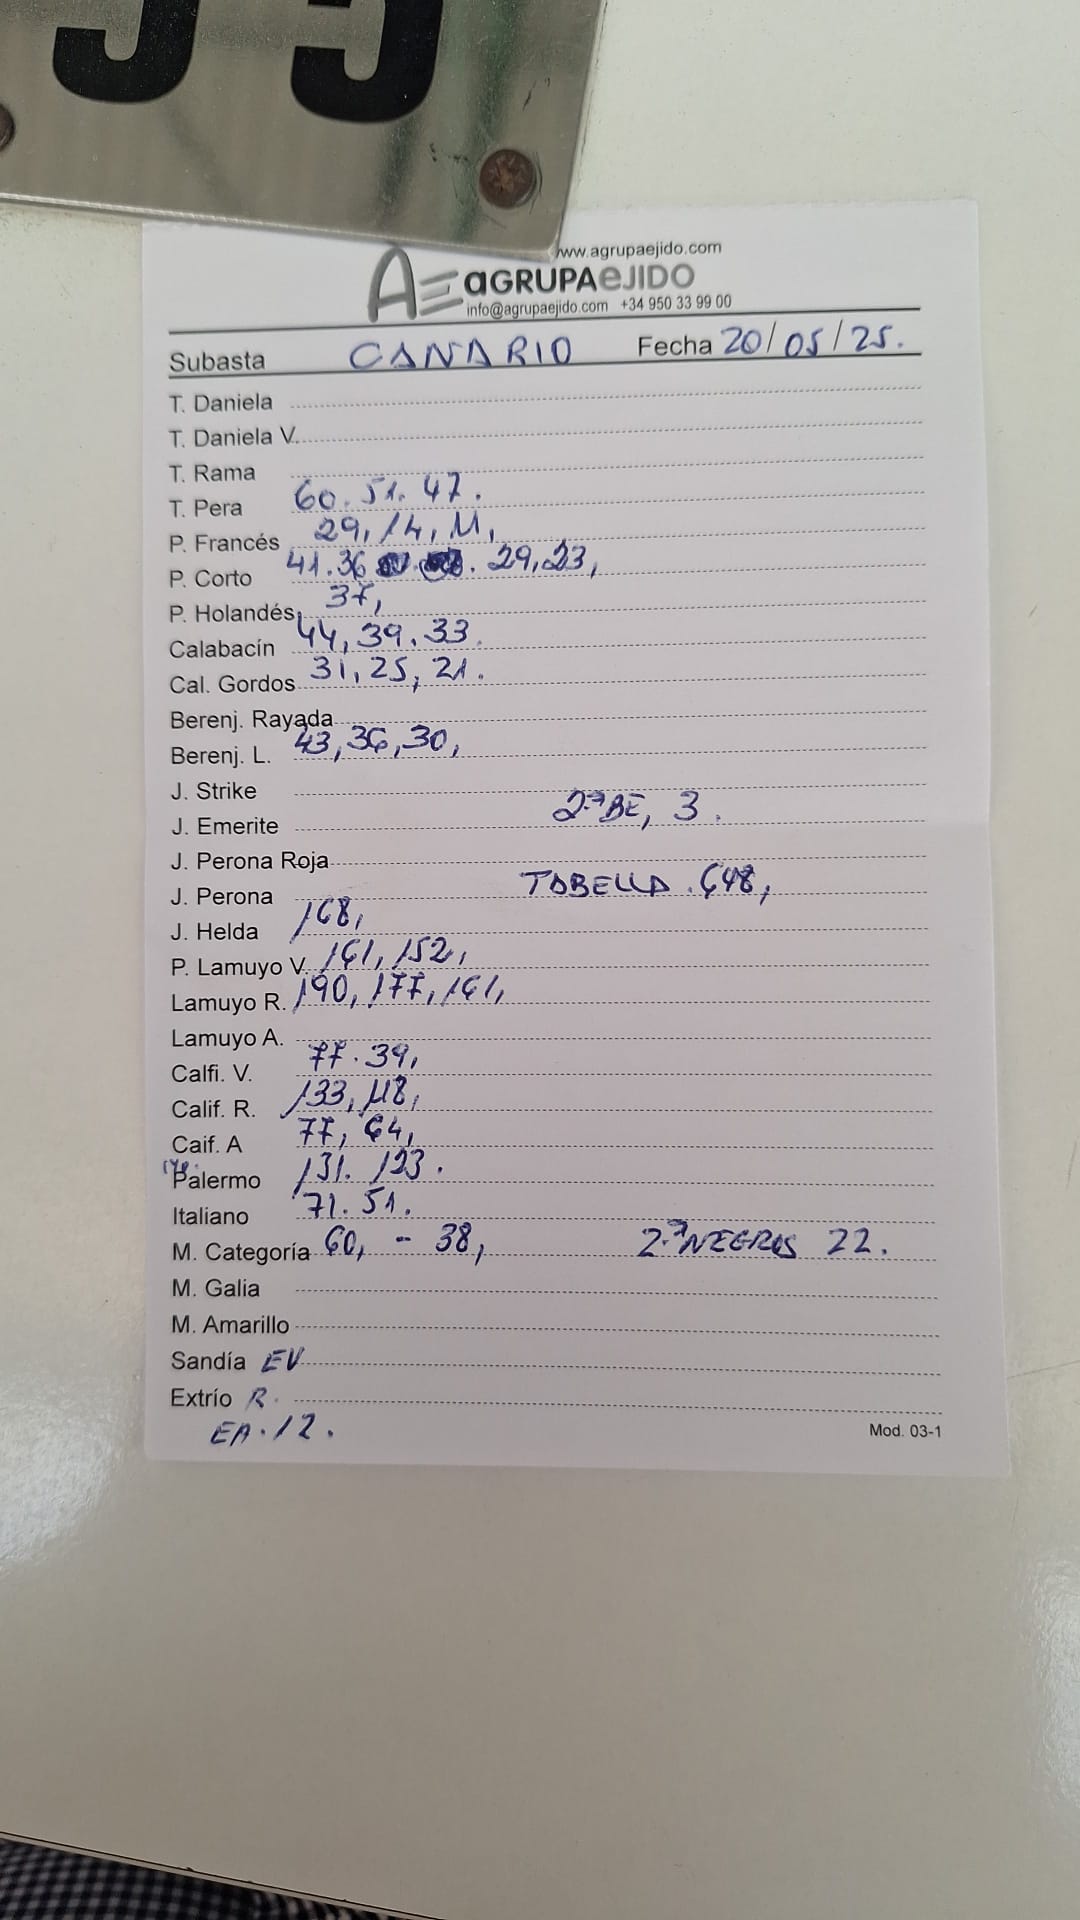 55
www.agrupaejido.com
AE aGRUPAeJIDO
info@agrupaejido.com +34 950 33 99 00
Subasta CANARIO Fecha 20/05/25.
T. Daniela
T. Daniela V.
T. Rama
T. Pera 60. 51. 47.
P. Francés 29, 14, 11,
P. Corto 41. 36 . 29, 23,
P. Holandés 37,
Calabacín 44, 39. 33.
Cal. Gordos 31, 25, 21.
Berenj. Rayada
Berenj. L. 43, 36, 30,
J. Strike
J. Emerite 2ª BE, 3.
J. Perona Roja
J. Perona TABELLA . 648,
J. Helda 168,
P. Lamuyo V. 161, 152,
Lamuyo R. 190, 177, 161,
Lamuyo A.
Calfi. V. 77. 39,
Calif. R. 133, 118,
Caif. A 77, 64,
Palermo 131. 123.
Italiano 71. 51.
M. Categoría 60, - 38, 2ª NEGROS 22.
M. Galia
M. Amarillo
Sandía EV
Extrío R.
EA. 12.
Mod. 03-1